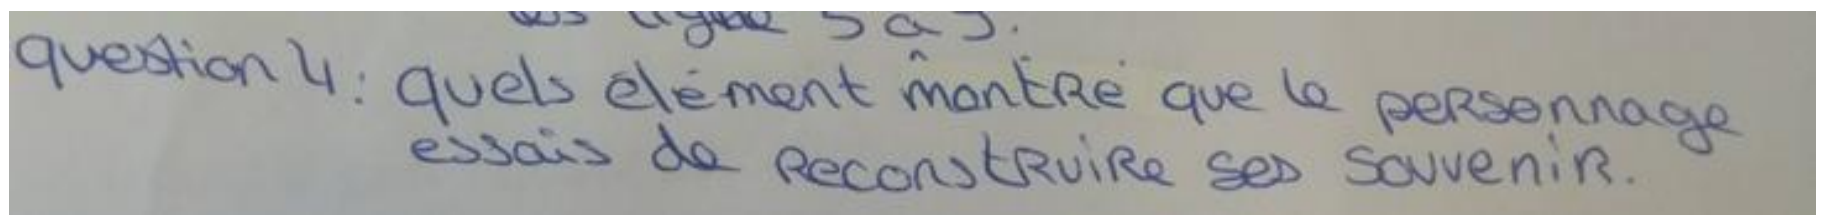 les ligne 5 a 5.
question 4: quels élément montré que le personnage
essais de reconstruire ses souvenir.